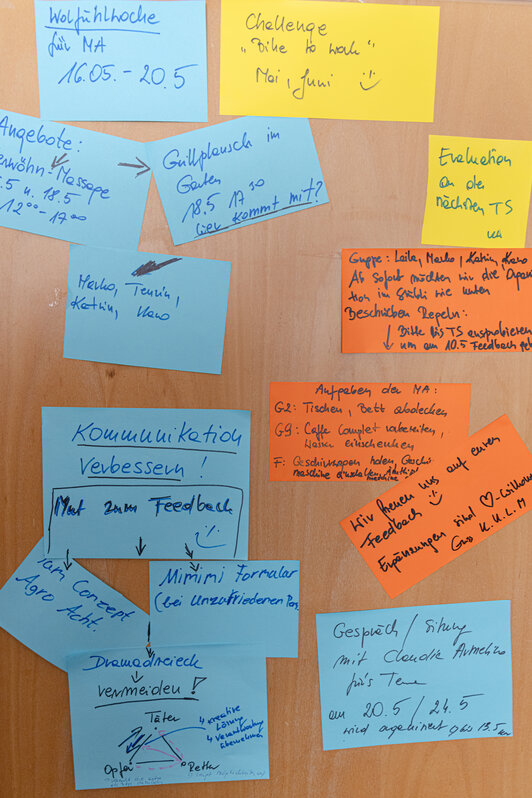 Wolfühlwoche
für MA
16.05. - 20.5
Challenge
„Bike to work"
Mai, Juni
Angebote:
Massage
5.5 u. 18.5
12⁰⁰-17⁰⁰
Grillplausch im
Garten
18.5 17³⁰
wer kommt mit?
Evaluation
an der
nächsten TS
Marko, Tenzin,
Katrin, Kano
Gruppe: Leila, Marko, Katrin, Kano
Ab Sofort möchten wir die
tion im Stübli wie unten
Beschrieben Regeln:
Bitte bis TS ausprobieren
um am 10.5 Feedback
Aufgaben der MA:
G2: Tischen, Bett abdecken
G9: Caffe Complet vorbereiten,
Wasser einschenken
F: Geschirrwagen holen, Geschirr
maschine einschalten,
Kommunikation
Verbessern!
Mut zum Feedback
Wir freuen uns auf euren
Feedback
Ergänzungen sind ♡-Willkom
K.K.L.M
Team Conzept
Agro Acht.
Mimimi Formular
(bei Unzufriedenen
Dramadreieck
vermeiden!
Täter
4 kreative
Lösung
4 Verantwortung
übernehmen
Opfer
Retter
Gespräch / Sitzung
mit Claudia
für's Team
am 20.5 / 24.5
wird organisiert 13.5